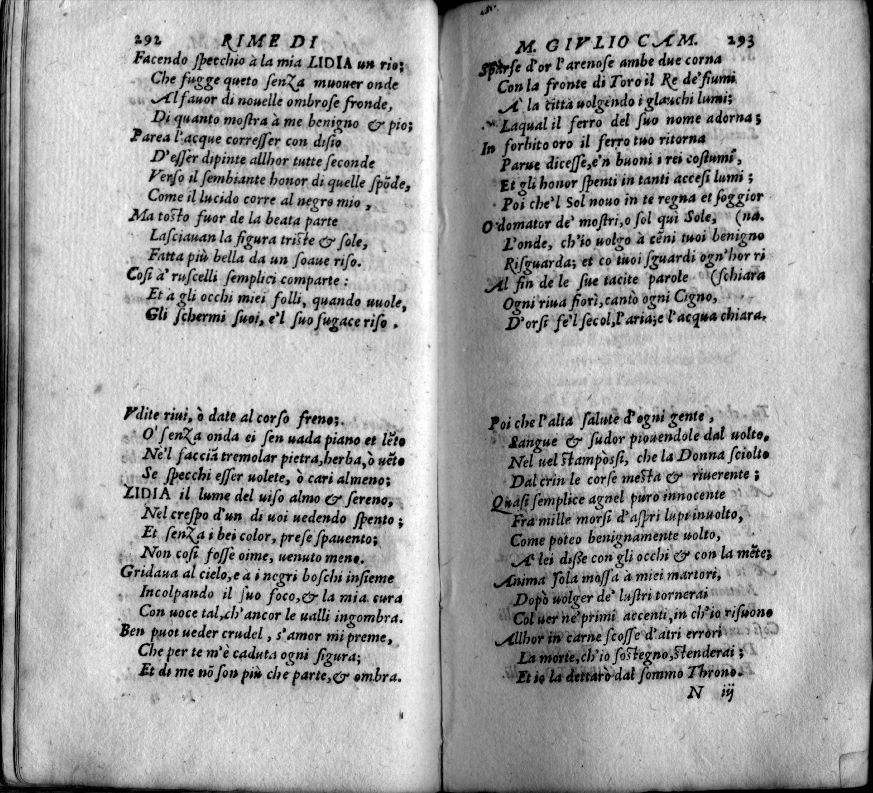 292 RIME DI
Facendo ſpecchio à la mia LIDIA un rio;
Che fugge queto ſenza muouer onde
Al fauor di nouelle ombroſe fronde,
Di quanto moſtra à me benigno & pio;
Parea l'acque correſſer con diſio
D'eſſer dipinte allhor tutte ſeconde
Verſo il ſembiante honor di quelle ſpōde,
Come il lucido corre al negro mio,
Ma toſto fuor de la beata parte
Laſciauan la figura triſte & ſole,
Fatta più bella da un ſoaue riſo.
Coſi à ruſcelli ſemplici comparte:
Et à gli occhi miei folli, quando uuole,
Gli ſchermi ſuoi, e'l ſuo fugace riſo.
Vdite riui, ò date al corſo freno;
O' ſenza onda ei ſen uada piano et lēto
Ne'l facciā tremolar pietra, herba, ò uēto
Se ſpecchi eſſer uolete, ò cari almeno;
LIDIA il lume del uiſo almo & ſereno,
Nel creſpo d'un di uoi uedendo ſpento;
Et ſenza i bei color, preſe ſpauento;
Non coſi foſſe oime, uenuto meno.
Gridaua al cielo, e a i negri boſchi inſieme
Incolpando il ſuo foco, & la mia cura
Con uoce tal, ch'ancor le ualli ingombra.
Ben puoi ueder crudel, s'amor mi preme,
Che per te m'è caduta ogni figura;
Et di me nō ſon più che parte, & ombra.
M. GIVLIO CAM. 293
Sparſe d'or l'arenoſe ambe due corna
Con la fronte di Toro il Re de' fiumi
A' la città uolgendo i glauchi lumi;
Laqual il ferro del ſuo nome adorna;
In forbito oro il ferro tuo ritorna
Parue diceſſe, e'n buoni i rei coſtumi,
Et gli honor ſpenti in tanti acceſi lumi;
Poi che'l Sol nouo in te regna et ſoggior
O domator de' moſtri, o ſol quì Sole, (na.
L'onde, ch'io uolgo à cēni tuoi benigno
Riſguarda; et co tuoi ſguardi ogn'hor ri
Al fin de le ſue tacite parole (ſchiara
Ogni riua fiorì, cantò ogni Cigno,
D'or ſi fe'l ſecol, l'aria, e l'acqua chiara.
Poi che l'alta ſalute d'ogni gente,
Sangue & ſudor piouendole dal uolto,
Nel uel ſtampòſſi, che la Donna ſciolto
Dal crin le corſe meſta & riuerente;
Quaſi ſemplice agnel puro innocente
Fra mille morſi d'aſpri lupi inuolto,
Come poteo benignamente uolto,
A' lei diſſe con gli occhi & con la mēte;
Anima ſola moſſa à miei martori,
Dopò uolger de' luſtri tornerai
Col uer ne' primi accenti, in ch'io riſuono
Allhor in carne ſcoſſe d'atri errori
La morte, ch'io ſoſtegno, ſtenderai;
Et io la dettarò dal ſommo Throno.
N iij